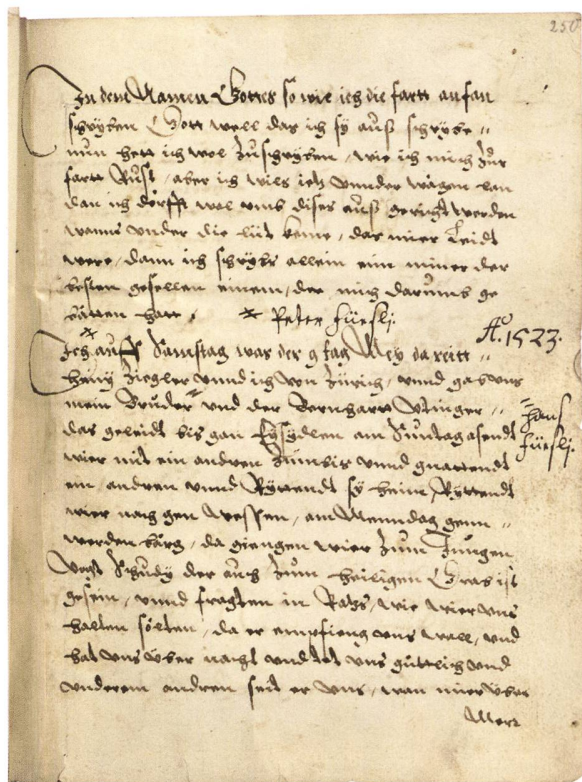 250
In dem Namen Gottes so wie ich die fartt anfan
schryben Gott well das ich sy auß schrybe
nun hett ich wol zuschryben, wie ich mich zur
fartt Rust, aber ich wils ietz vnnder wägen lan
dan ich dörfft wol vmb dises auß gericht werden
wanns vnder die lüt keme, das mier Leidt
were, dann ich schrybs allein eim miner der
besten gesellen einem, der mich darumb ge
bätten hatt. * Peter Füesli.
Aº. 1523.
* Ich auff Samstag was der 9 tag Mey da reitt
heiny Ziegler vnnd ich von Zürich, vnnd gab vns
mein Bruder = vnd der Bernhartt
= Hans Füesli.
das geleidt bis gan Eysydlen am Suntag asendt
wier mit ein andren Zum vnnd gnattendt
ein andren vnnd Ryttendt sy heim, Ryttendt
wier nach gen Wessen, am Menndag genn
werdenbärg, da giengen wier zum Jungen
Vogt Schudy der auch zum heiligen Grab ist
gesein, vnnd fragten in Rahts, wie wier vns
halten sölten, da er empfieng vns woll, vnd
hat vns über nacht vnd tet vns güttlich vnd
vnderem andren seit er vns, wan mier über
Meer